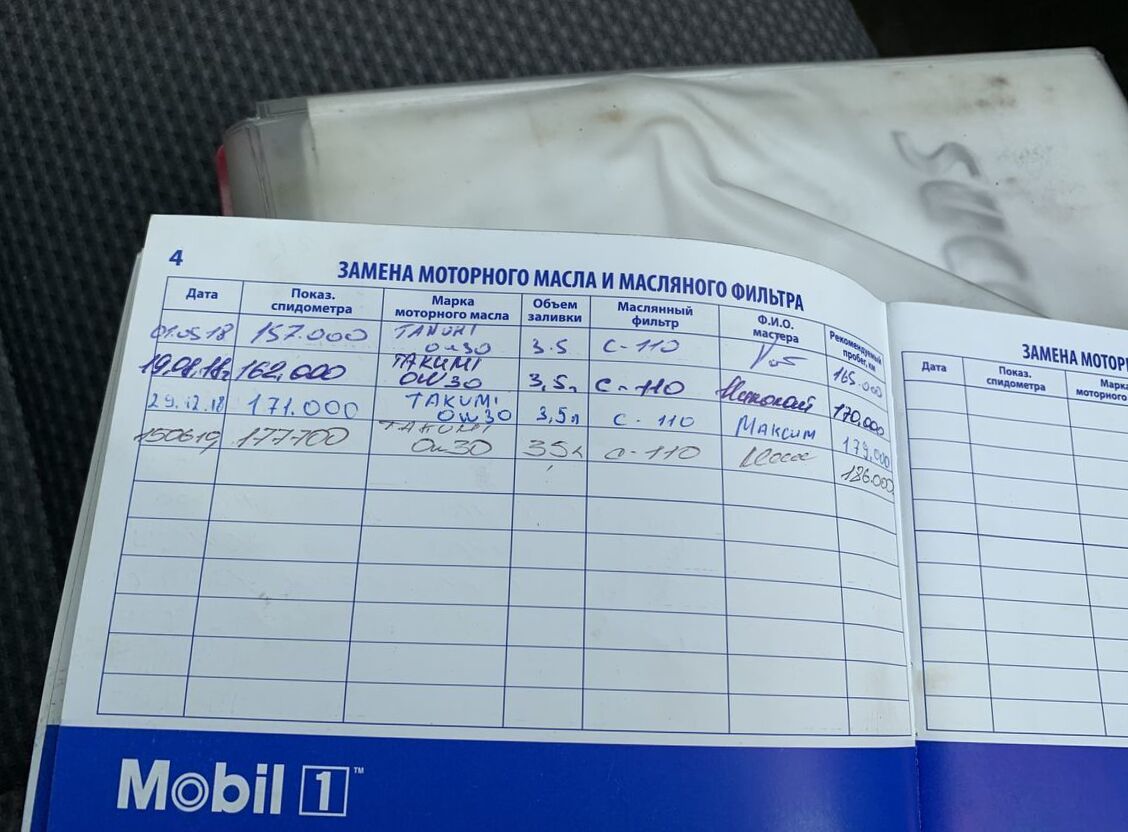 4
ЗАМЕНА МОТОРНОГО МАСЛА И МАСЛЯНОГО ФИЛЬТРА
Дата Показ. спидометра Марка моторного масла Объем заливки Маслянный фильтр Ф.И.О. мастера Рекомендуемый пробег, км
01.05.18 157.000 TAKUMI 0w30 3.5 C-110 165.000
19.08.18г 162,000 TAKUMI 0W30 3,5л C-110 Николай 170,000
29.12.18 171.000 TAKUMI 0w30 3,5л C-110 Максим 179,000
150619 177700 TAKUMI 0w30 35л C-110 186.000
ЗАМЕНА МОТОР
Дата Показ. спидометра Марка моторного
Mobil 1™